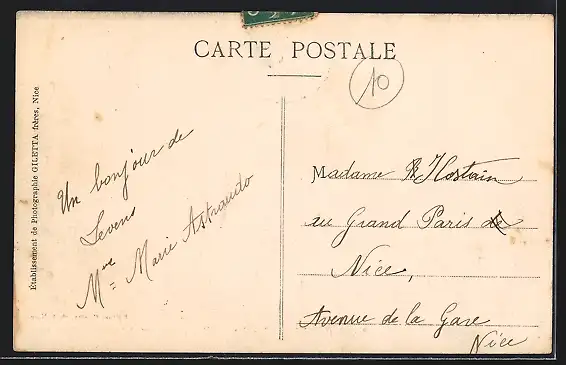 CARTE POSTALE
10
Établissement de Photographie GILETTA frères, Nice
Un bonjour de
Levens
Mme Marie Astraudo
Madame Hostain
au Grand Paris de
Nice,
Avenue de la Gare
Nice